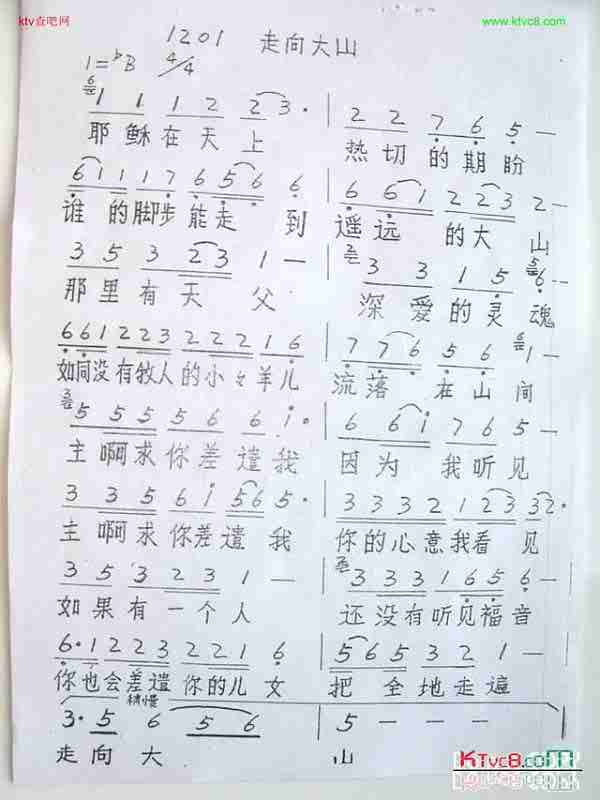 ktv查吧网 www.ktvc8.com
1201 走向大山
1=♭B 4/4
1 1 1 2 2 3· | 2 2 7 6 5 —
耶稣在天上 热切的期盼
6 1 1 1 7 6 5 6 6 | 6 6 1 2 2 3 2 —
谁的脚步能走到 遥远的大山
3 5 3 2 3 1 — | 3 3 1 5 6·
那里有天父 深爱的灵魂
6 6 1 2 2 3 2 2 2 1 6 | 7 7 6 5 6 1 —
如同没有牧人的小羊儿 流落在山间
5 5 5 5 6 6 i· | 6 6 i 7 6 5 —
主啊求你差遣我 因为我听见
3 3 5 6 i 5 6 5· | 3 3 3 2 1 2 3 3 2·
主啊求你差遣我 你的心意我看见
3 5 3 2 3 1 — | 3 3 3 1 6 5 6 —
如果有一个人 还没有听见福音
6· 1 2 2 3 2 2 1 6 | 5 6 5 3 2 1 —
你也会差遣你的儿女 把全地走遍
稍慢
3· 5 6 5 6 | 5 — —
走向大 山
KTvc8.com